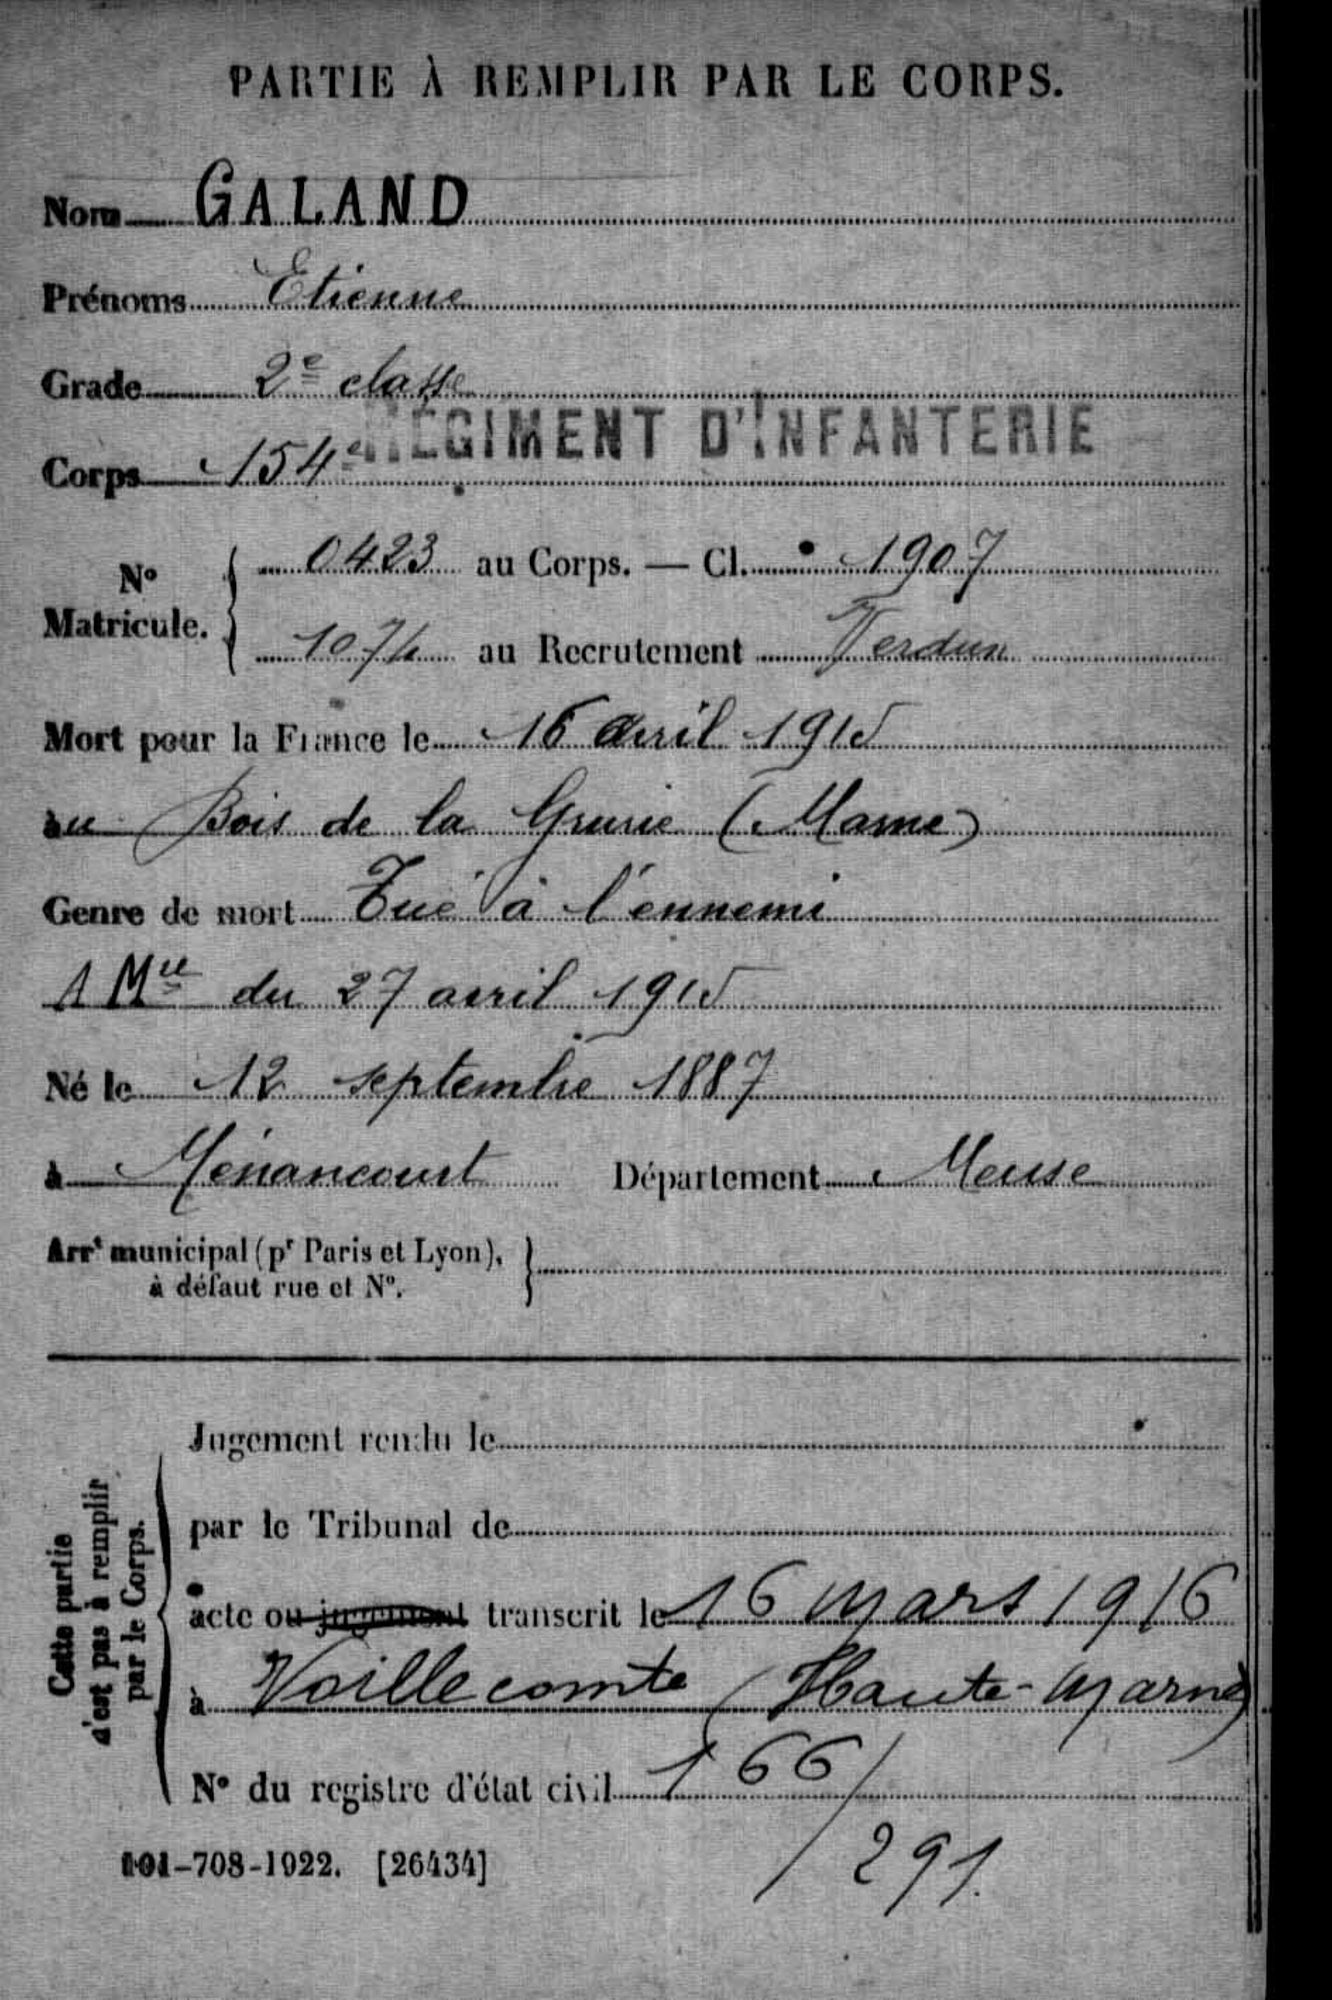 PARTIE À REMPLIR PAR LE CORPS.
Nom GALAND
Prénoms Etienne
Grade 2e classe
Corps 154e RÉGIMENT D'INFANTERIE
N° Matricule. { 0423 au Corps. — Cl. 1907
1074 au Recrutement Verdun
Mort pour la France le 16 avril 1915
au Bois de la Grurie (Marne)
Genre de mort Tué à l'ennemi
A Mel du 27 avril 1915
Né le 12 septembre 1887
à Ménancourt Département Meuse
Arrt municipal (pr Paris et Lyon), à défaut rue et N°. }
Jugement rendu le
par le Tribunal de
acte ou jugement transcrit le 16 mars 1916
à Voillecomte (Haute-Marne)
N° du registre d'état civil 166/
291.
Cette partie n'est pas à remplir par le Corps.
101-708-1922. [26434]